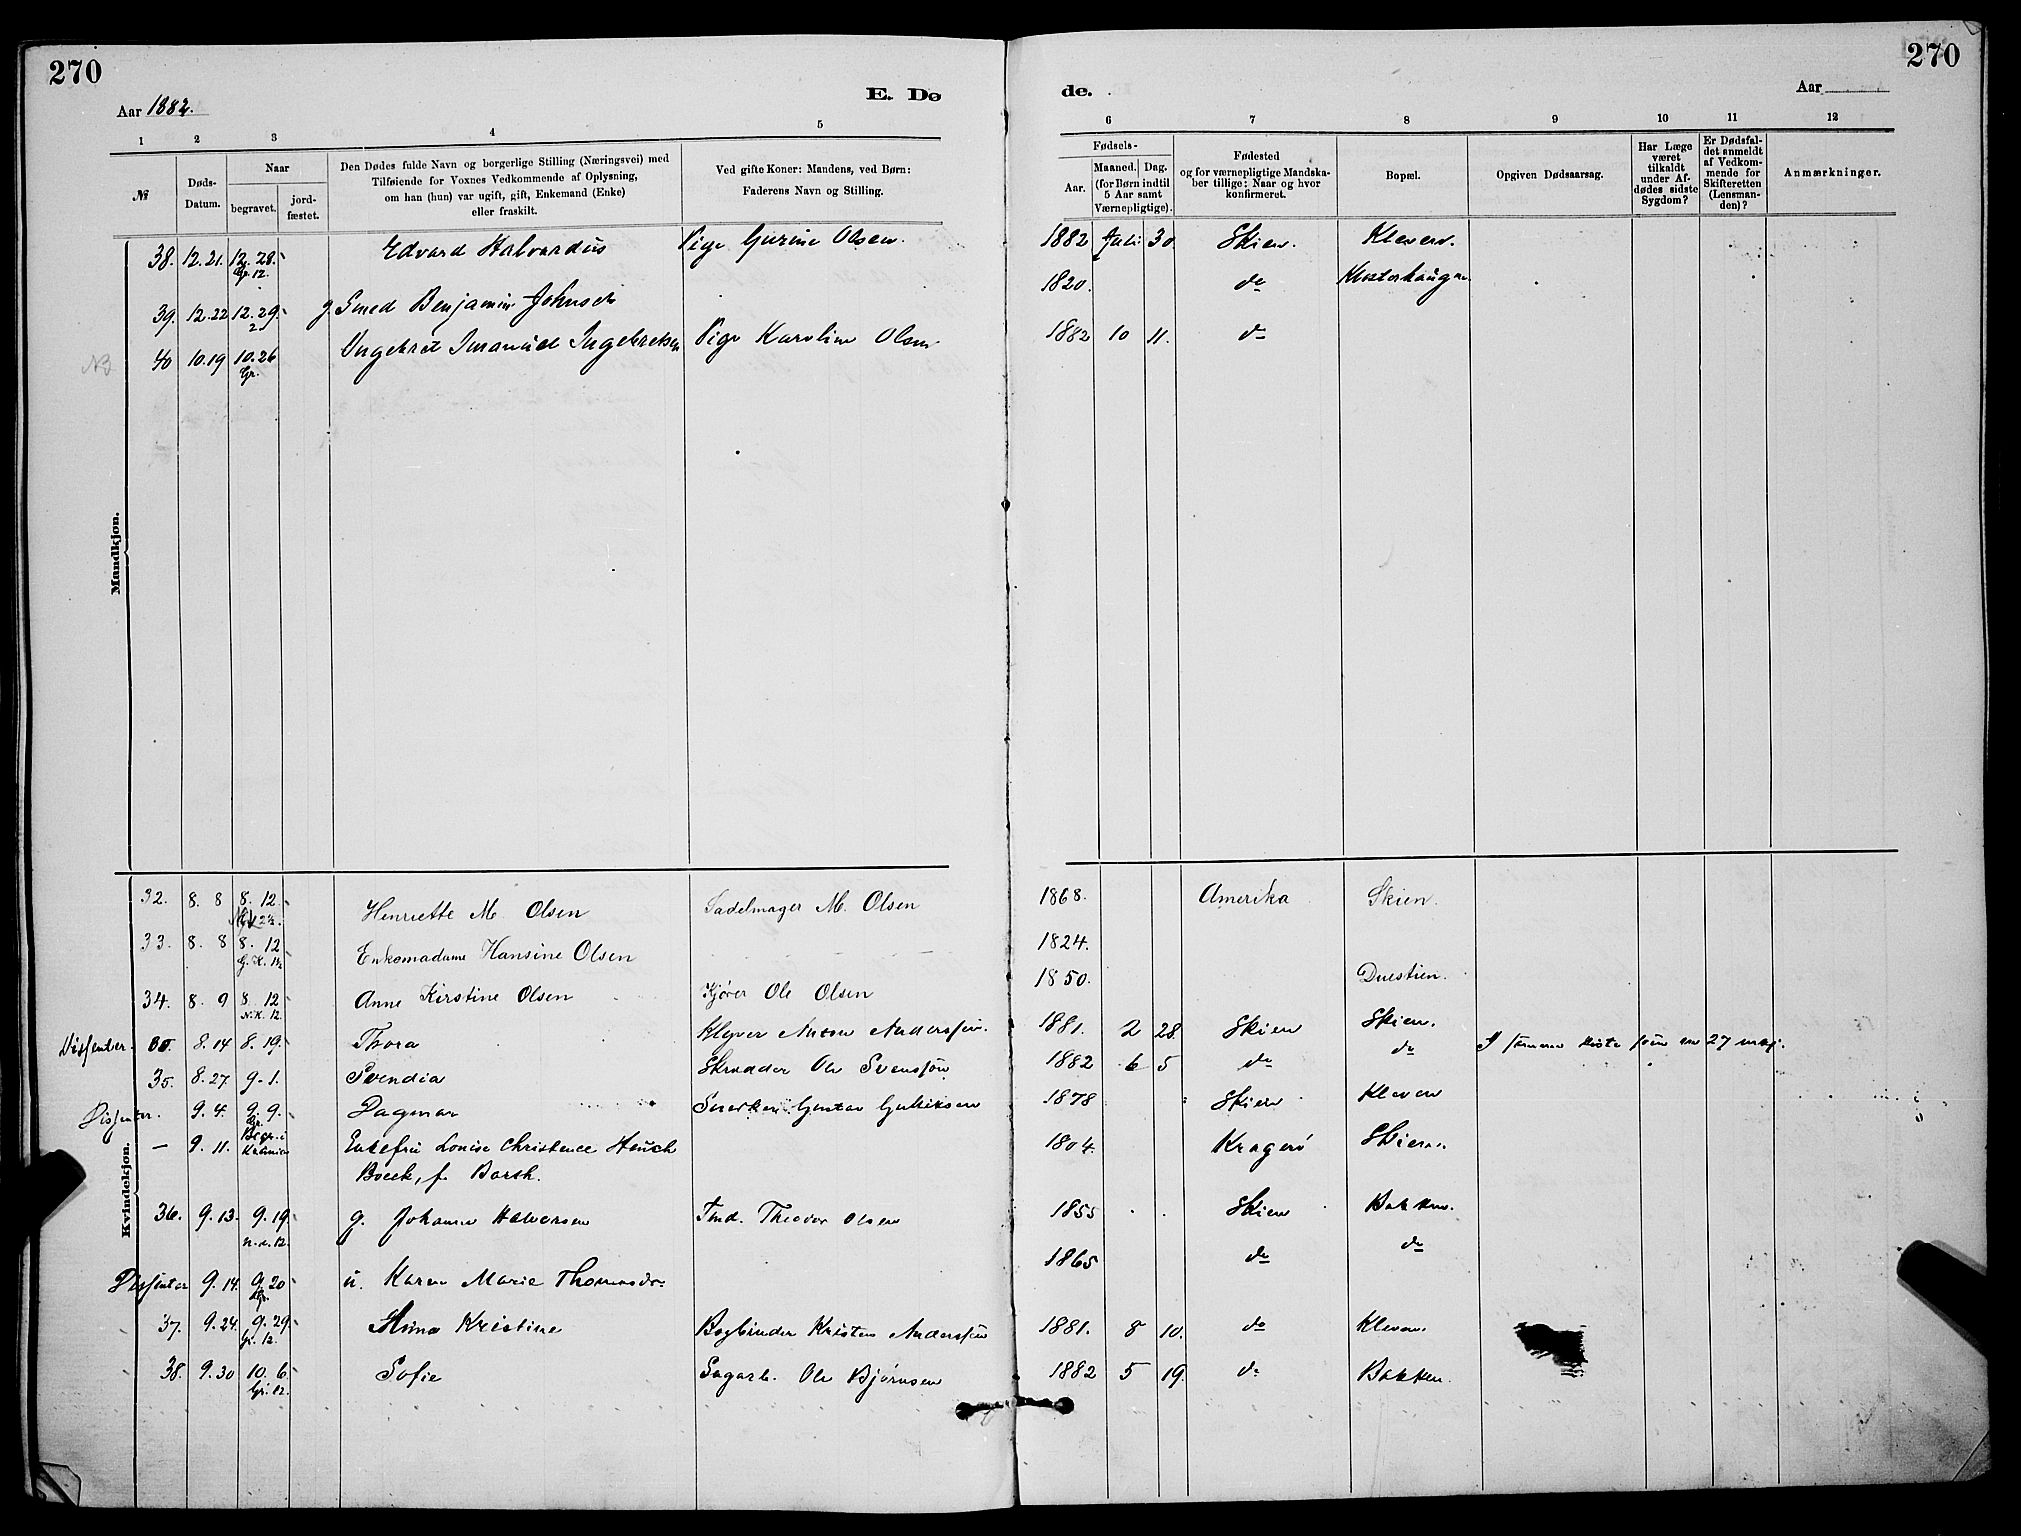 270
270
Aar 1882.
E. Dø
de.
Aar
1 2 3 4 5
6 7 8 9 10 11 12
№
Døds-
Datum.
Naar
begravet.
jord-
fæstet.
Den Dødes fulde Navn og borgerlige Stilling (Næringsvei) med
Tilføiende for Voxnes Vedkommende af Oplysning,
om han (hun) var ugift, gift, Enkemand (Enke)
eller fraskilt.
Ved gifte Koner: Mandens, ved Børn:
Faderens Navn og Stilling.
Fødsels-
Aar.
Maaned. Dag.
(for Børn indtil
5 Aar samt
Værnepligtige).
Fødested
og for værnepligtige Mandska-
ber tillige: Naar og hvor
konfirmeret.
Bopæl.
Opgiven Dødsaarsag.
Har Læge
været
tilkaldt
under Af-
dødes sidste
Sygdom?
Er Dødsfal-
det anmeldt
af Vedkom-
mende for
Skifteretten
(Lensman-
den)?
Anmærkninger.
Mandkjøn.
38. 12.21. 12. 28. Edvard Halvardus Pige Gurine Olsen. 1882 Juli 30 Skien. Kleven.
Gr. 12.
39. 12.22 12.29. g. Smed Benjamin Johnsen 1820. do Klosterhaugen
2
NB 40 10.19 10.26 Ingebret Imanuel Ingebretsen Pige Karoline Olsen. 1882 10 11. do
Gr.
Kvindekjøn.
32. 8. 8 8. 12 Henriette M. Olsen Sadelmager M. Olsen 1868. Amerika Skien.
33. 8. 8 8. 12 Enkemadame Hansine Olsen 1824.
G. K. 1½
34. 8. 9 8 12 Anne Kirstine Olsen Kjører Ole Olsen 1850. Duestien.
N.K. 12.
Dissenter. 8.14 8.19. Thora Anderssen. 1881. 2 28. Skien Skien.
35. 8.27. 9.1. Svendia Skrædder Ole Svenssøn 1882 6 5 do do I samme Kiste som 27
Dissenter. 9.4. 9.9. Dagmar Snedker Gustav 1878 Skien Kleven
Gr.
— 9.11. Begr. i Enkefru Lovise Christence Heuch 1804. Kragerø Skien.
Boeck, f. Barth.
36. 9.13. 9.19. g. Johanne Halvorsen Tmd. Theodor Olsen 1855 Skien Bakken.
N.K.12.
Dissenter 9.14. 9.20 u. Karen Marie Thomasdr. 1865 do do
Gr.
37. 9.24. 9.29. Anna Kristine Bogbinder Kristen Anderssen 1881. 8 10. do Kleven.
Gr. 12.
38. 9.30 10.6. Sofie Sagarb. Ole Bjørnsen 1882 5 19. do Bakken.
Gr. 12.